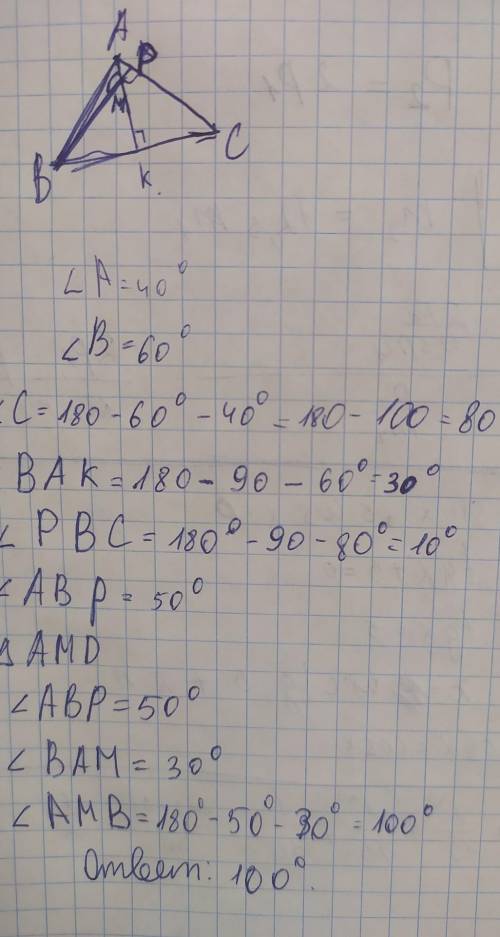 A
P
M
B
K.
C
∠A=40°
∠B=60°
∠C=180-60°-40°=180-100=80
BAK=180-90-60°=30°
∠PBC=180°-90-80°=10°
∠ABP=50°
Δ AMD
∠ABP=50°
∠BAM=30°
∠AMB=180°-50°-30°=100°
Ответ: 100°.